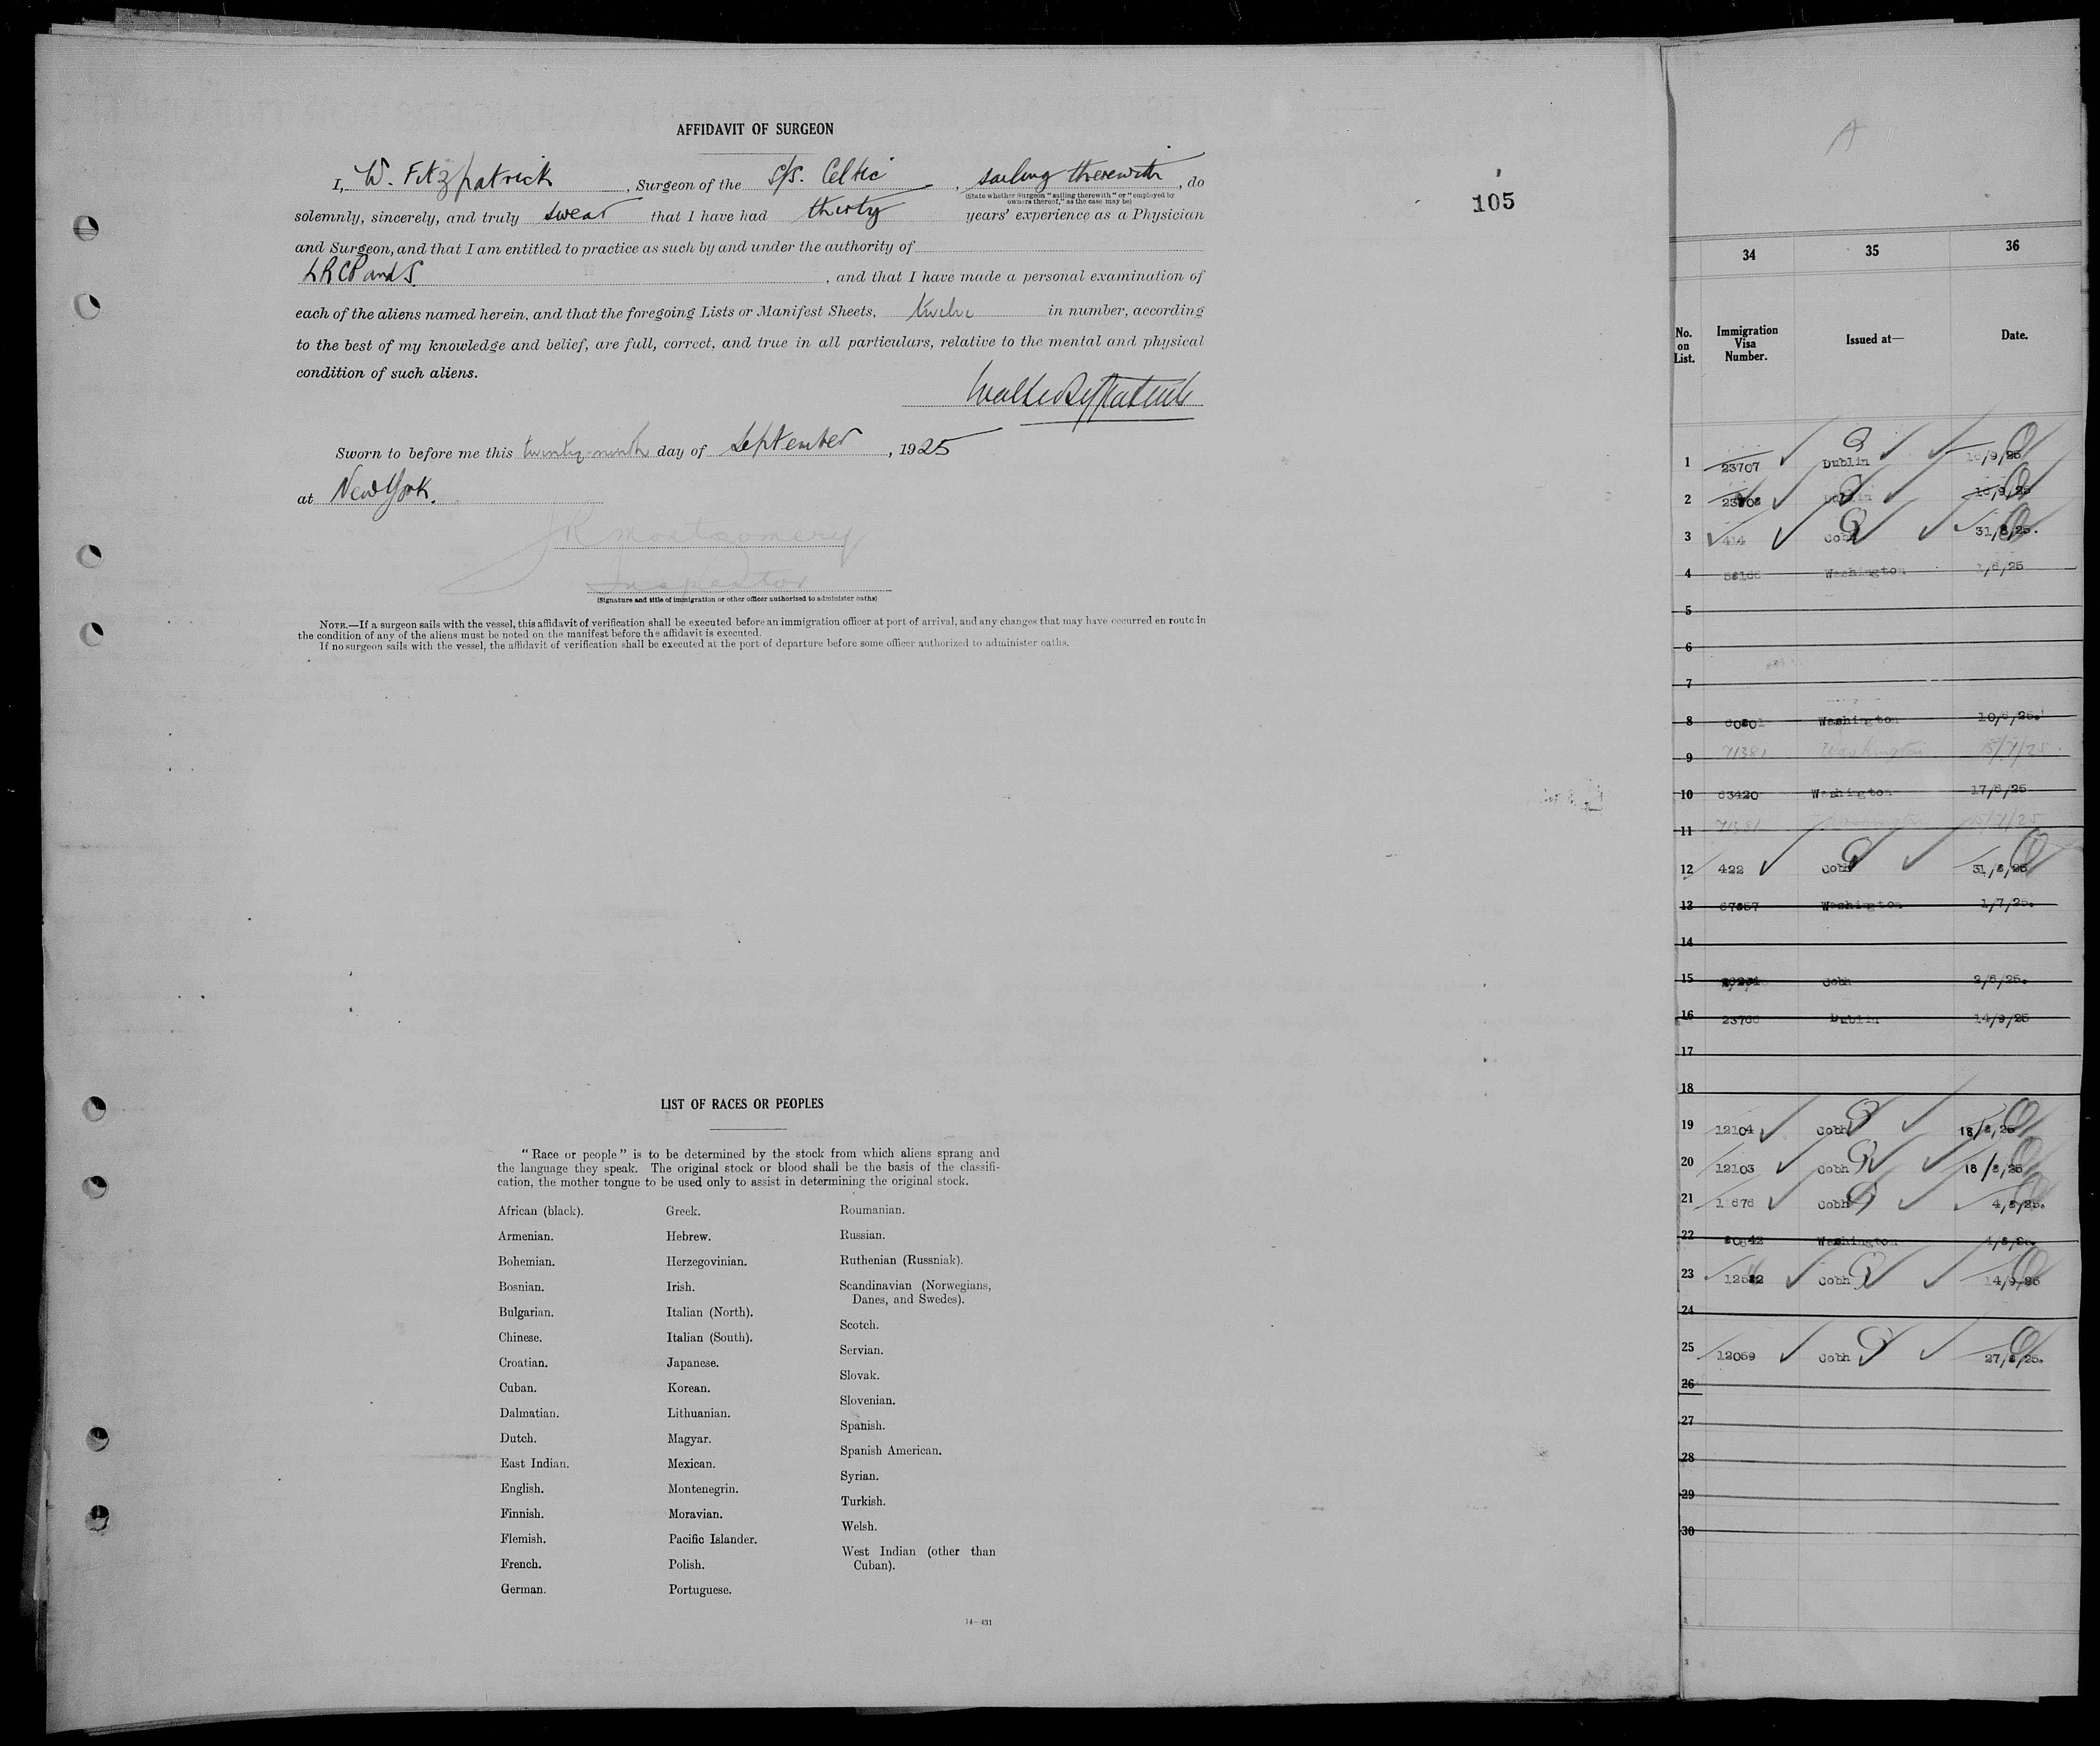 AFFIDAVIT OF SURGEON
I, W. Fitzpatrick, Surgeon of the S/S. Celtic, sailing therewith, do
(State whether Surgeon "sailing therewith" or "employed by
owners thereof," as the case may be)
solemnly, sincerely, and truly swear that I have had thirty years' experience as a Physician
and Surgeon, and that I am entitled to practice as such by and under the authority of
LRCP and S, and that I have made a personal examination of
each of the aliens named herein, and that the foregoing Lists or Manifest Sheets, twelve in number, according
to the best of my knowledge and belief, are full, correct, and true in all particulars, relative to the mental and physical
condition of such aliens.
Sworn to before me this twenty-ninth day of September, 1925
at New York.
JR Montgomery
Inspector
(Signature and title of immigration or other officer authorized to administer oaths)
NOTE.—If a surgeon sails with the vessel, this affidavit of verification shall be executed before an immigration officer at port of arrival, and any changes that may have occurred en route in
the condition of any of the aliens must be noted on the manifest before the affidavit is executed.
If no surgeon sails with the vessel, the affidavit of verification shall be executed at the port of departure before some officer authorized to administer oaths.
105
LIST OF RACES OR PEOPLES
"Race or people" is to be determined by the stock from which aliens sprang and
the language they speak. The original stock or blood shall be the basis of the classifi-
cation, the mother tongue to be used only to assist in determining the original stock.
African (black).
Armenian.
Bohemian.
Bosnian.
Bulgarian.
Chinese.
Croatian.
Cuban.
Dalmatian.
Dutch.
East Indian.
English.
Finnish.
Flemish.
French.
German.
Greek.
Hebrew.
Herzegovinian.
Irish.
Italian (North).
Italian (South).
Japanese.
Korean.
Lithuanian.
Magyar.
Mexican.
Montenegrin.
Moravian.
Pacific Islander.
Polish.
Portuguese.
Roumanian.
Russian.
Ruthenian (Russniak).
Scandinavian (Norwegians,
Danes, and Swedes).
Scotch.
Servian.
Slovak.
Slovenian.
Spanish.
Spanish American.
Syrian.
Turkish.
Welsh.
West Indian (other than
Cuban).
14—431
A
34 35 36
No. on List. Immigration Visa Number. Issued at— Date.
1 23707 Dublin /9/25
2 23708 Dublin 16/9/25
3 414 Cobh 31/8/25.
4 Washington 1/6/25
5
6
7
8 Washington 10/6/25.
9 71381 Washington 15/7/25
10 63420 Washington 17/6/25
11 71381 Washington 15/7/25
12 422 Cobh 31/8/25
13 67857 Washington 1/7/25.
14
15 Cobh 2/6/25.
16 23766 Dublin 14/9/25
17
18
19 12104 Cobh 18/8/25
20 12103 Cobh 18/8/25
21 11676 Cobh 4/8/25.
22 Washington
23 Cobh 14/9/25
24
25 12059 Cobh 27/8/25.
26
27
28
29
30